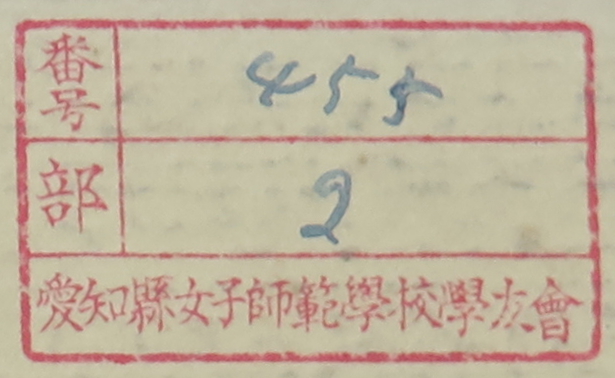 番号 455
部 2
愛知縣女子師範學校學友會